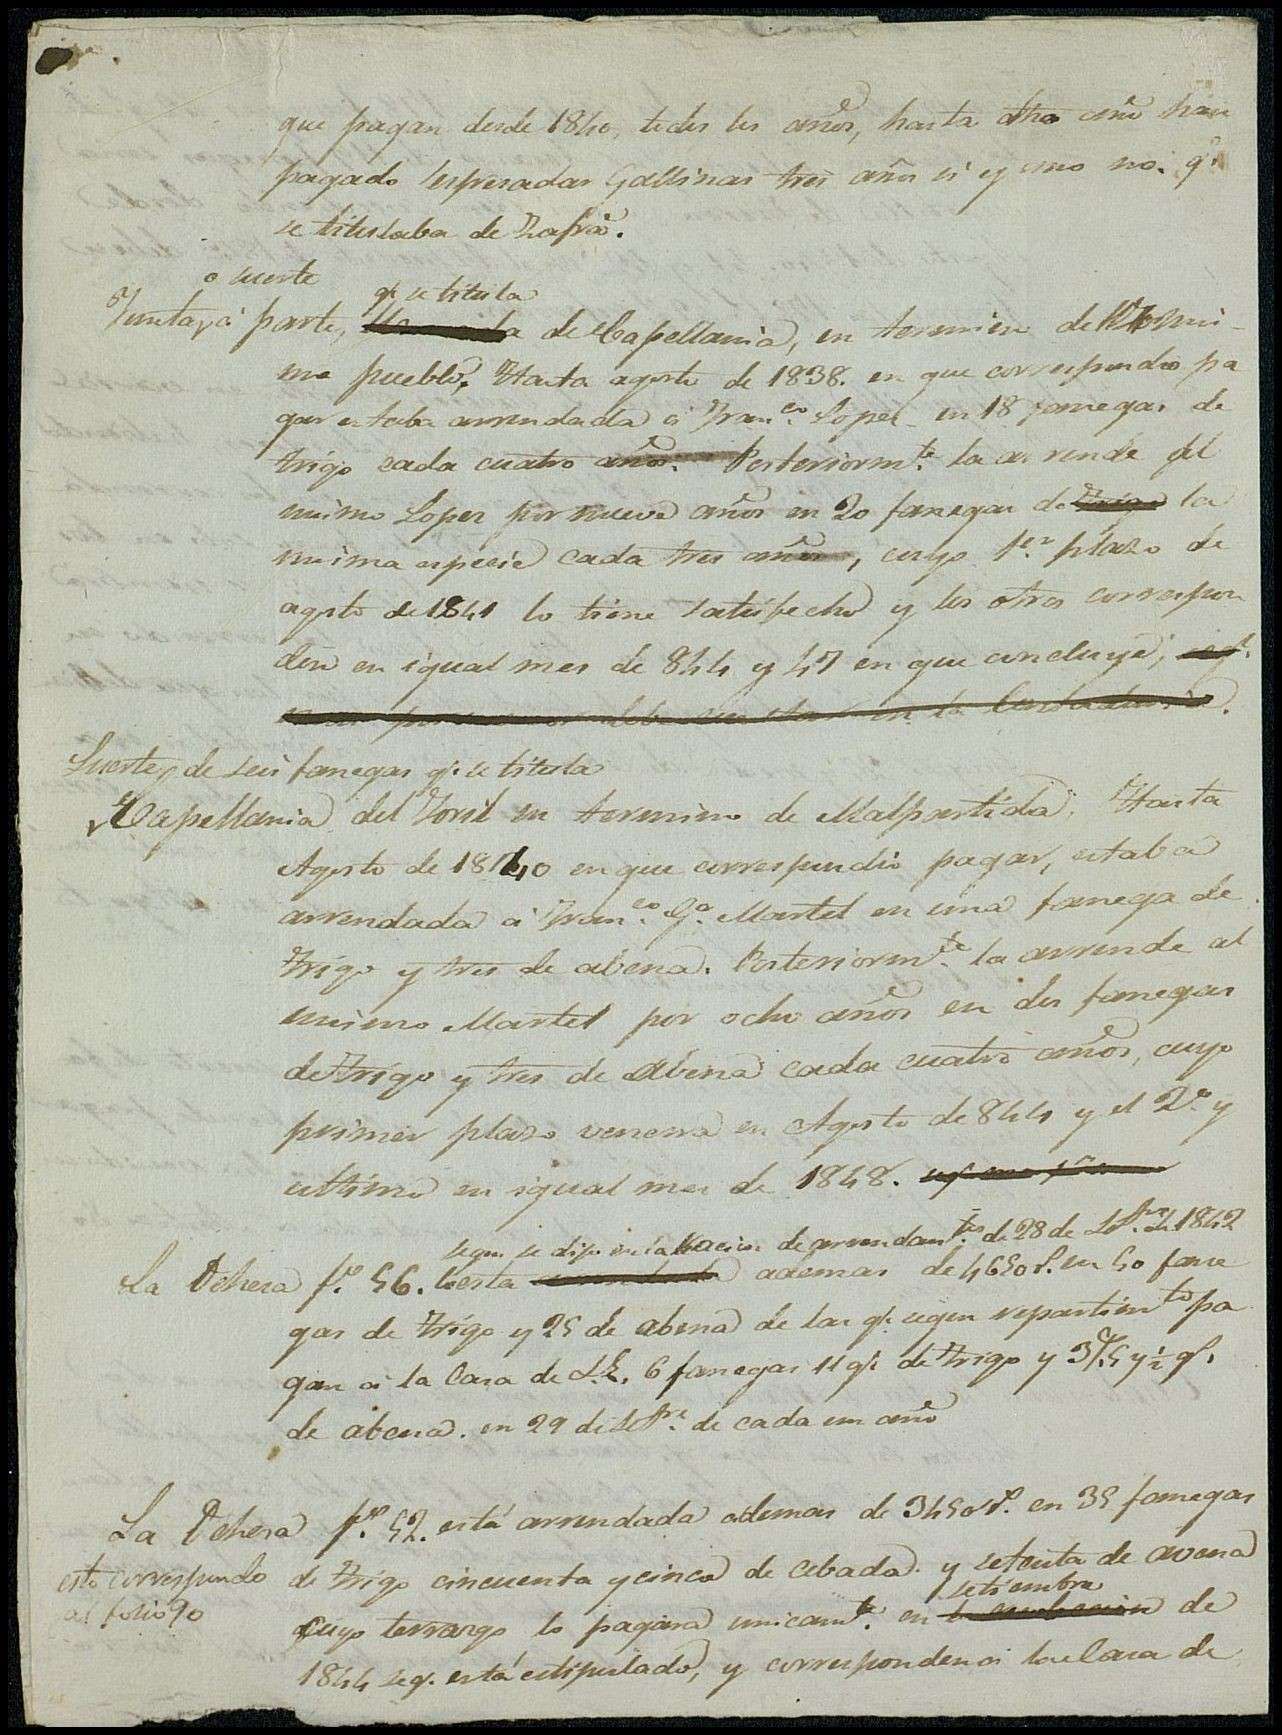 que pagan desde 1840, todos los años, hasta dho año han
pagado espresadas Gallinas tres años si y uno no. q.e
se titulaba de Zafra.
o suerte
q.e se titula
Yunta, a parte, de Capellania, en termino de mismi-
mo pueblo. Hasta agosto de 1838. en que correspondio pa
gar estaba arrendada á Fran.co Lopez en 18 fanegas de
trigo cada cuatro años. Posteriorm.te la arrende al
mismo Lopez por nueve años en 20 fanegas de trigo la
misma especie cada tres años, cuyo 1.er plazo de
agosto de 1841 lo tiene satisfecho y los otros correspon
den en igual mes de 844 y 47 en que concluye;
Suerte, de seis fanegas q.e se titula
Capellania del Toril en termino de Malpartida. Hasta
Agosto de 1840 en que correspondio pagar, estaba
arrendada á Fran.co G.a Martel en una fanega de
trigo y tres de abena. Posteriorm.te la arrende al
mismo Martel por ocho años en dos fanegas
de trigo y tres de Abena cada cuatro años, cuyo
primer plazo vencera en Agosto de 844 y el 2.o y
ultimo en igual mes de 1848.
segun se dijo en la relacion de arrendam.tos de 28 de Set.bre de 1842
La Dehesa f.o 56. esta ademas de 4650 r.s en 50 fane
gas de trigo y 25 de abena de las q.e segun repartim.to pa
gan á la Casa de S.E. 6 fanegas 11 q.s de trigo y 3 f.s 5 y ½ q.s
de abena. en 29 de Set.bre de cada un año
La Dehesa f.o 52. está arrendada ademas de 3450 r.s en 35 fanegas
esto corresponde
al folio 90
de trigo cincuenta y cinco de cebada. y setenta de avena
setiembre
cuyo terrazgo lo pagara unicam.te en de
1844 seg.n está estipulado, y corresponden á la Casa de